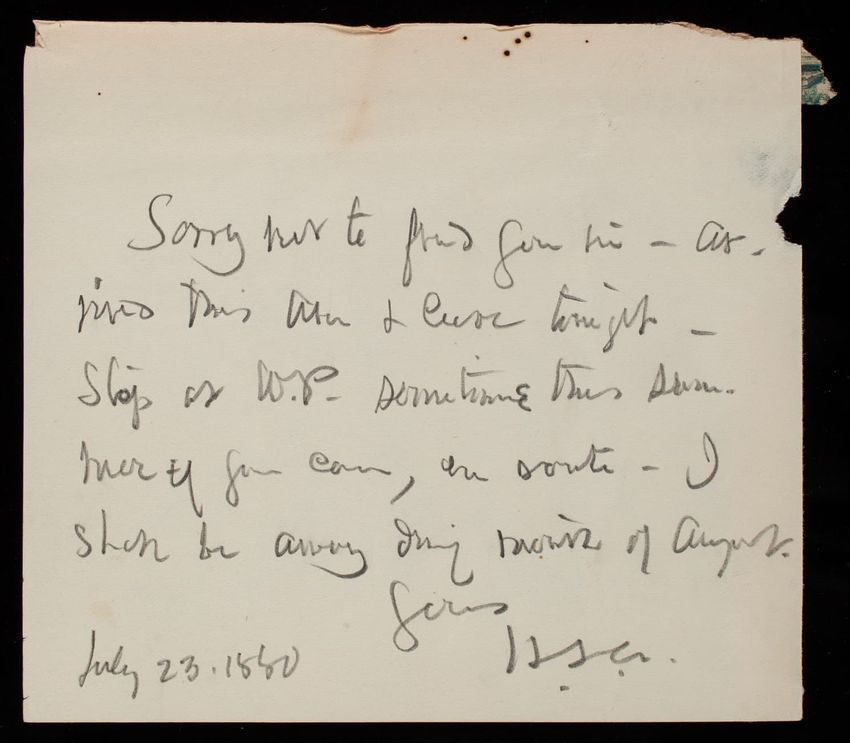 Sorry not to find you in – ar-
rived this A.M. & leave tonight –
Stop at W.P. sometime this sum-
mer if you can, en route – I
shall be away dring month of August.
Yours
July 23. 1880